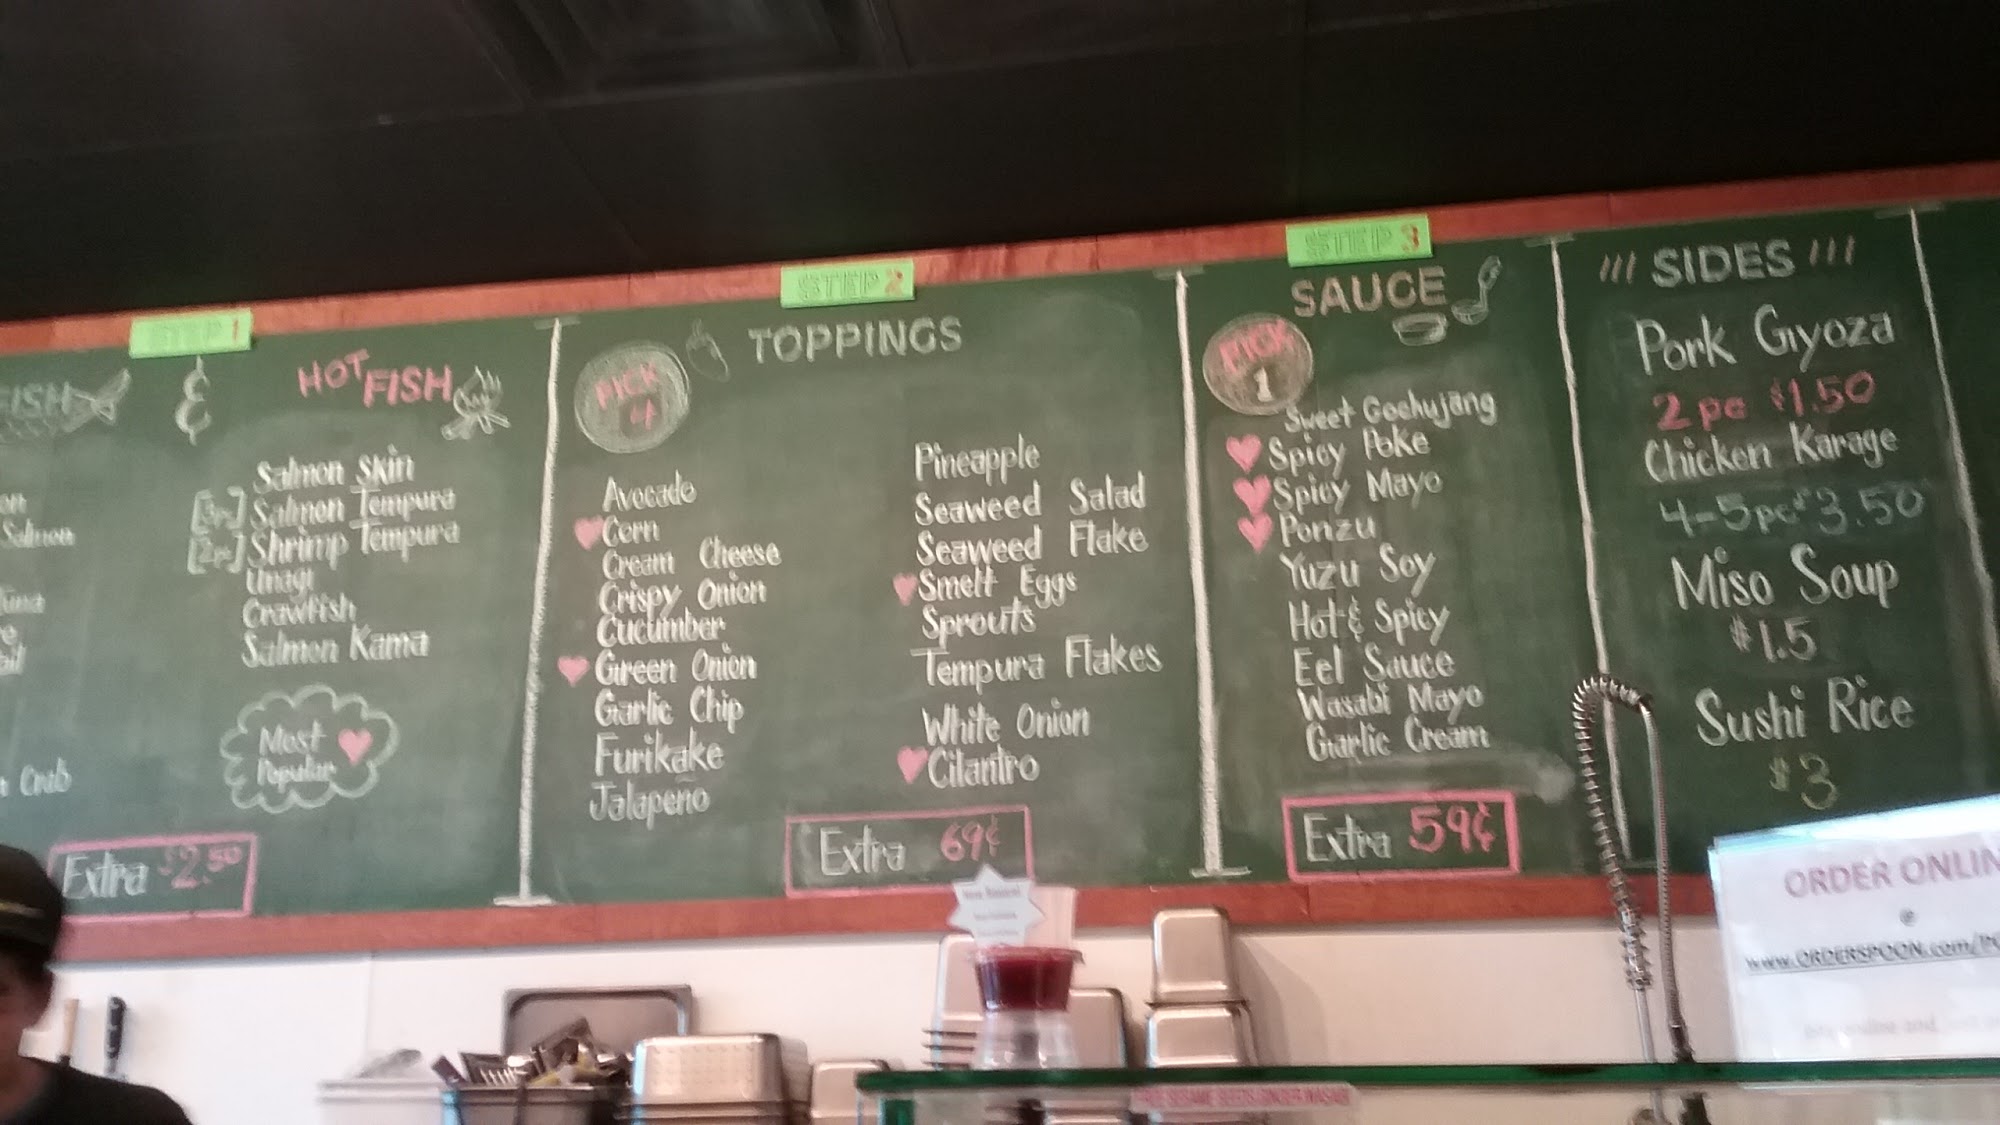 STEP 1
FISH
&
HOT FISH
Salmon
Crab
Salmon Skin
[3pc] Salmon Tempura
[2pc] Shrimp Tempura
Unagi
Crawfish
Salmon Kama
Most
Popular
Extra $2.50
STEP 2
PICK
4
TOPPINGS
Avocado
Corn
Cream Cheese
Crispy Onion
Cucumber
Green Onion
Garlic Chip
Furikake
Jalapeño
Pineapple
Seaweed Salad
Seaweed Flake
Smelt Eggs
Sprouts
Tempura Flakes
White Onion
Cilantro
Extra 69¢
STEP 3
SAUCE
PICK
1
Sweet Gochujang
Spicy Poke
Spicy Mayo
Ponzu
Yuzu Soy
Hot & Spicy
Eel Sauce
Wasabi Mayo
Garlic Cream
Extra 59¢
SIDES
Pork Gyoza
2 pc $1.50
Chicken Karage
4-5pc $3.50
Miso Soup
$1.5
Sushi Rice
$3
ORDER ONLIN
@
www.ORDERSPOON.com/PO